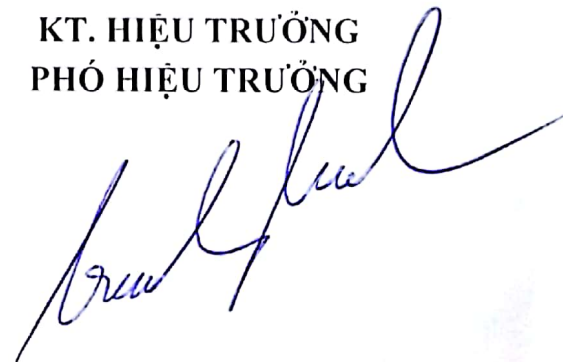 KT. HIỆU TRƯỞNG
PHÓ HIỆU TRƯỞNG